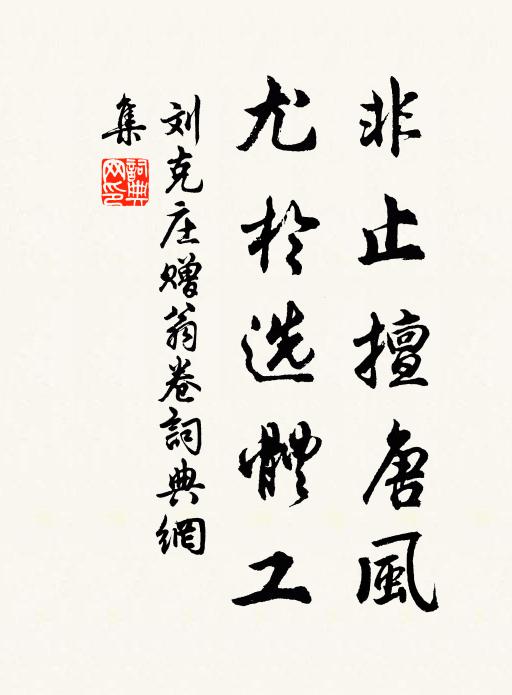 非止擅唐風
尤於选體工
刘克庄赠翁卷詞典網
集
詞典网印